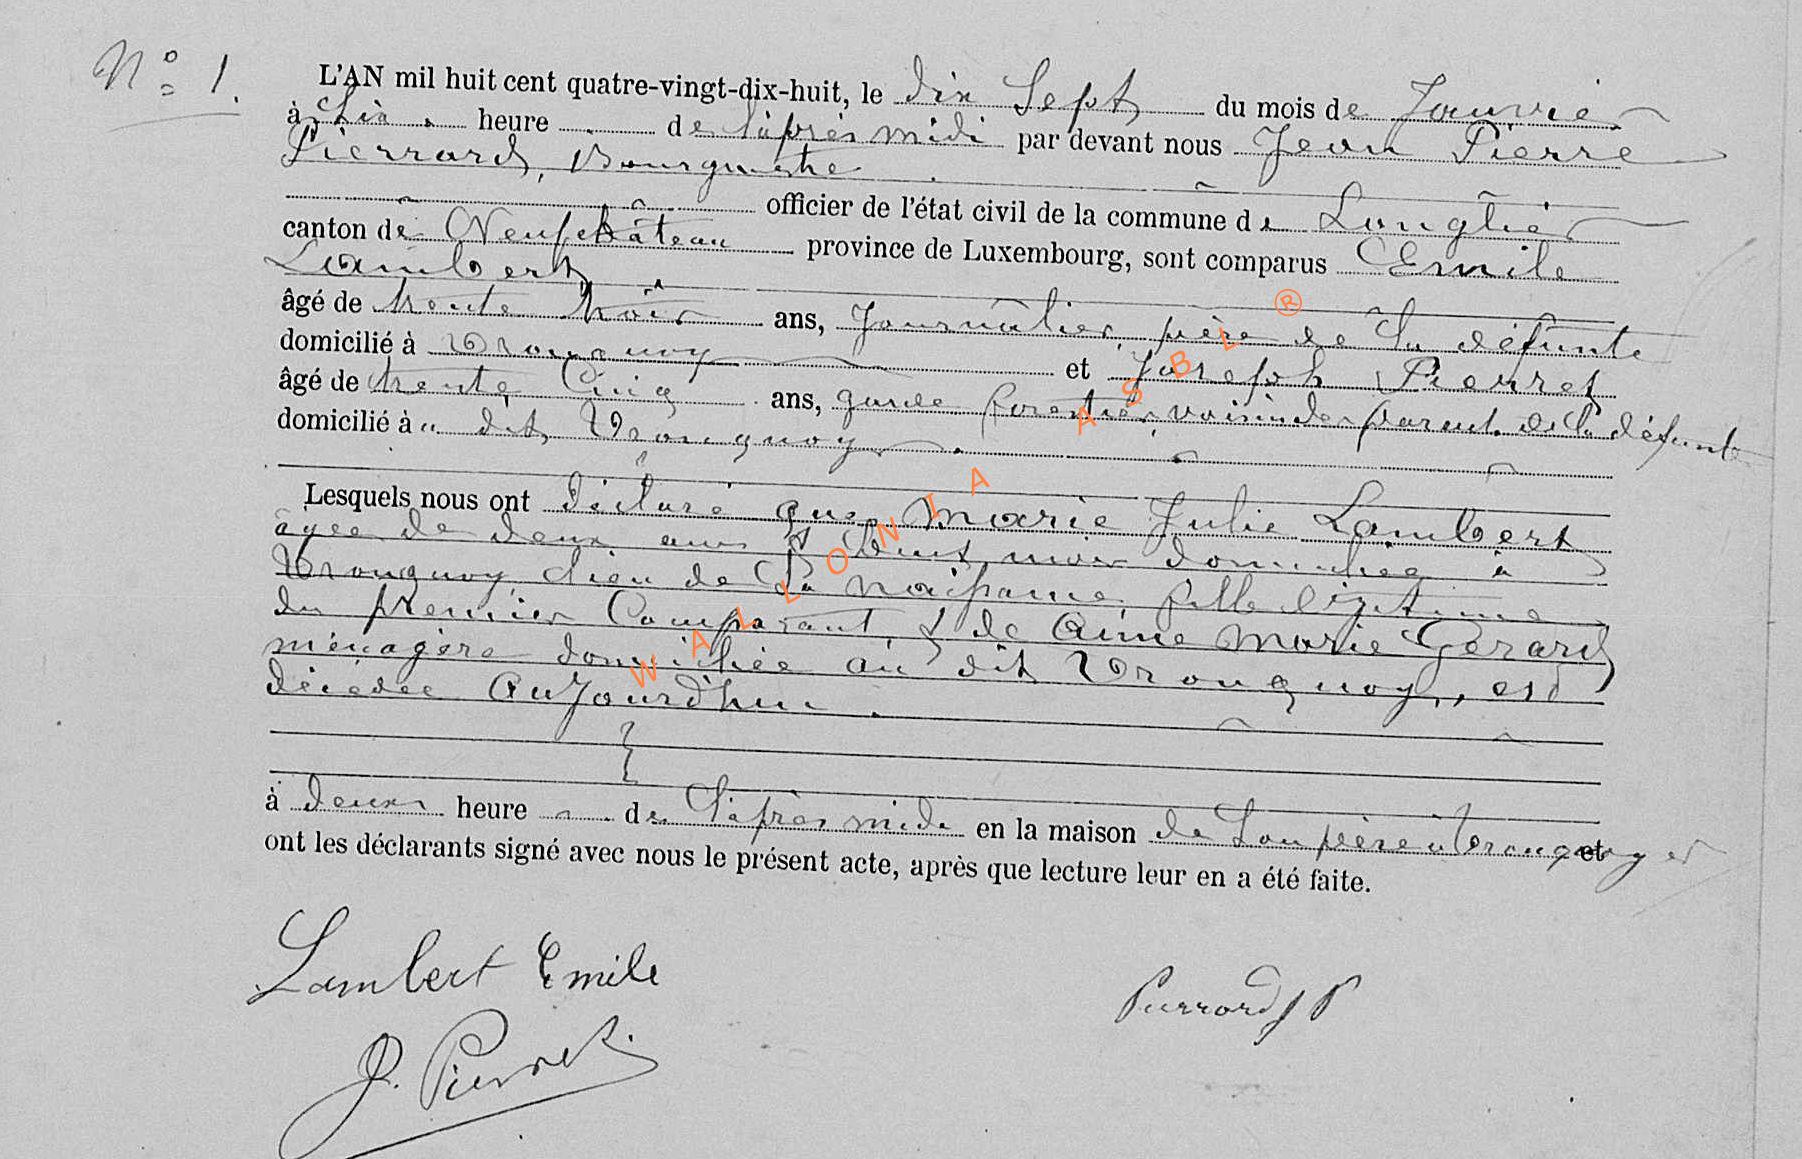 N° 1.
L'AN mil huit cent quatre-vingt-dix-huit, le dix Sept du mois de Janvier
à Six heure de l'après midi par devant nous Jean Pierre
Pierrard, Bourgmestre
officier de l'état civil de la commune de Longlier
canton de Neufchâteau province de Luxembourg, sont comparus Emile
Lambert
âgé de trente trois ans, Journalier, père de la défunte
domicilié à Wrouquoy et Joseph Pierret
âgé de trente Cinq ans, garde forestier, voisin parent de la défunte
domicilié à dit Wrouquoy
Lesquels nous ont déclaré que Marie Julie Lambert
âgée de deux ans & huit mois domiciliée à
Wrouquoy, lieu de Sa naissance, fille légitime
du premier Comparant, & de Aimé Marie Gérard
ménagère domiciliée au dit Wrouquoy, est
décédée Aujourd'hui
à deux heure de l'après midi en la maison de Son père à Wrouquoy et
ont les déclarants signé avec nous le présent acte, après que lecture leur en a été faite.
Lambert Emile
Pierrard J P
J. Pierret
WALLONIA ASBL ®